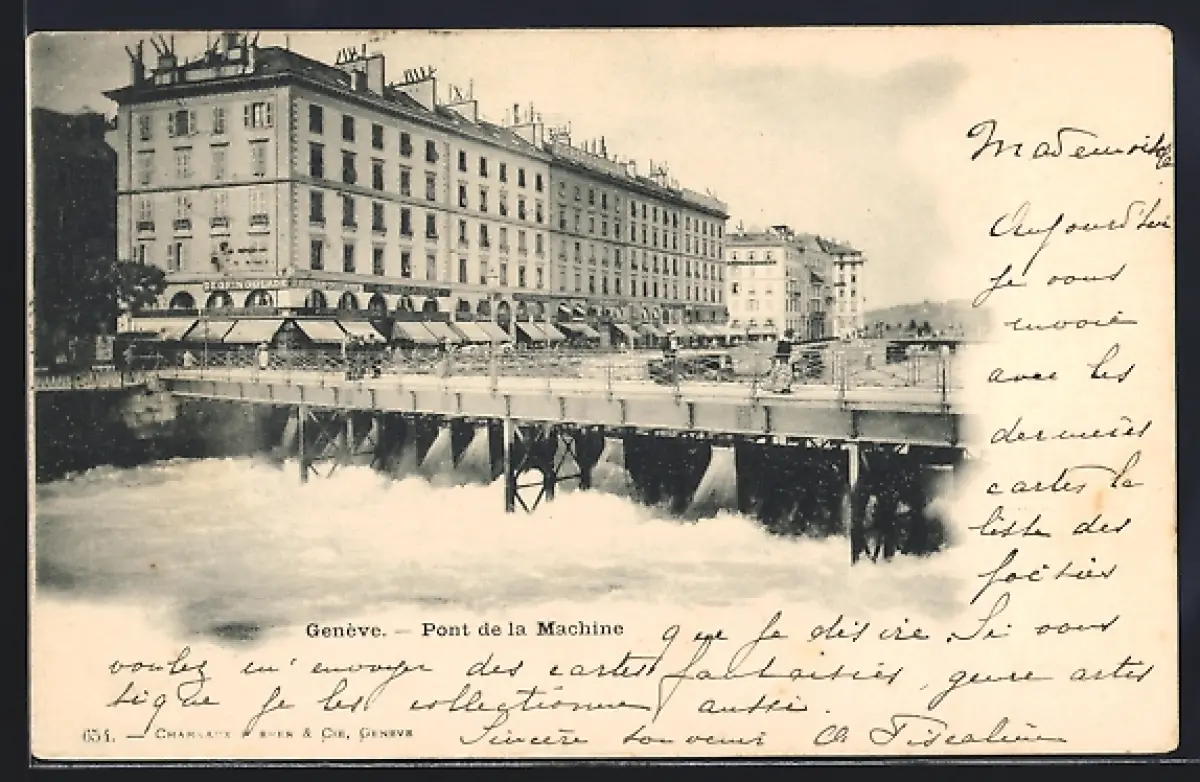 Mademoiselle
Aujourd'hui
Je vous
envoie
avec les
dernières
cartes la
liste des
Genève. — Pont de la Machine
que je désire. Si vous
voulez m'envoyer des cartes fantaisies, genre artis
tique je les collectionne aussi.
654. — Charnaux Frères & Cie, Genève
Sincère souvenir